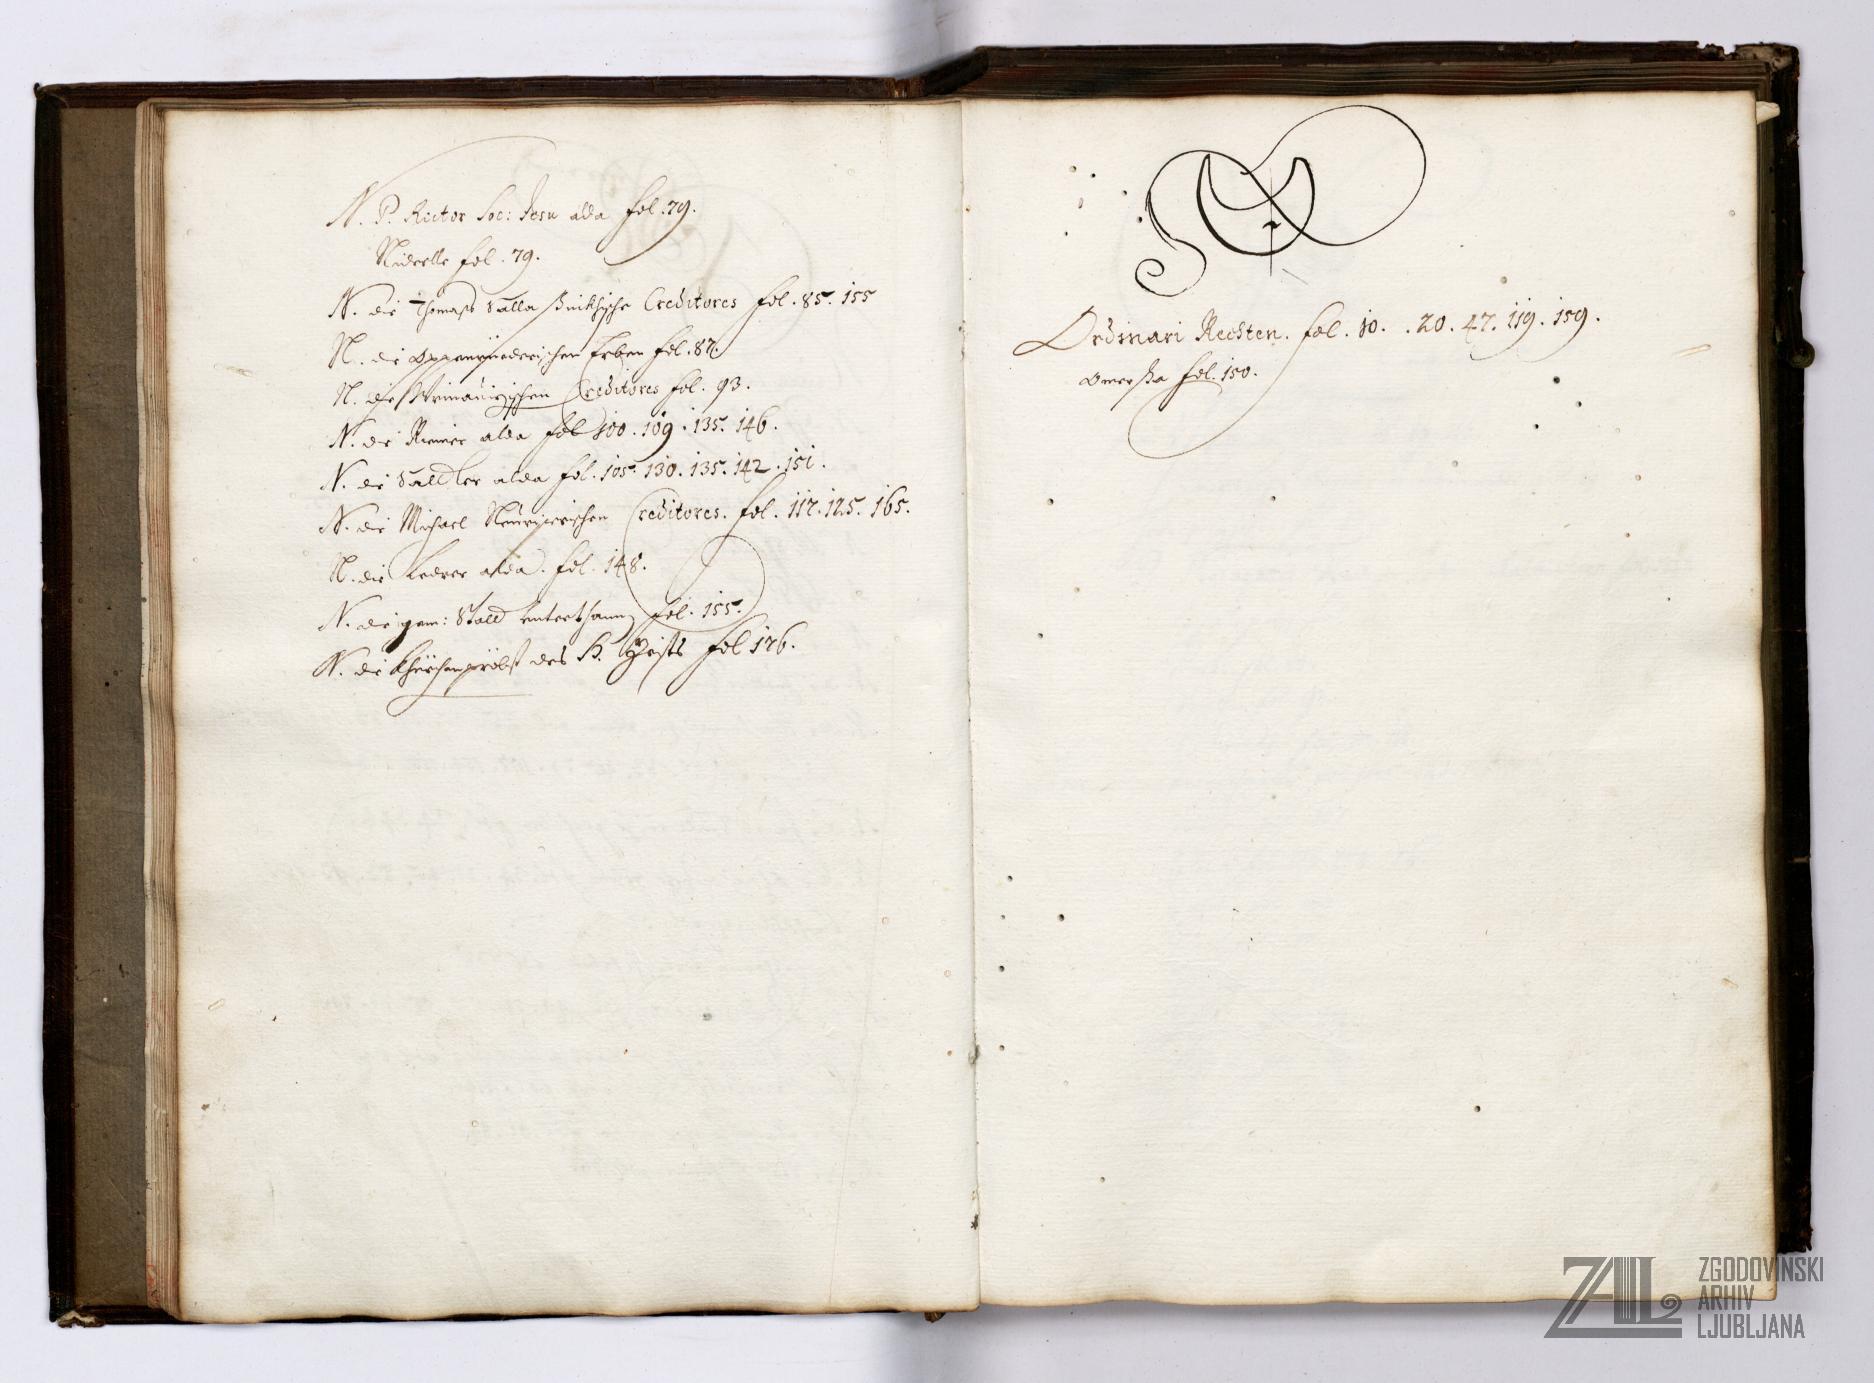 N. P. Rector Soc: Jesu alda fol. 79.
Niderlle fol. 79.
N. die Thomaß Salla Creditores fol. 85. 155
N. die Erben fol. 87.
N. die Creditores fol. 93.
N. die Riemer alda fol 100. 109. 135. 146.
N. die Sattler alda fol. 105. 130. 135. 142. 151.
N. die Michael Creditores. fol. 117. 125. 165.
N. die Lederer alda. fol. 148.
N. die gem: Statt unterthann fol. 155.
N. die Khürchenpröbst des H. Geists fol 176.
O
Ordinari Rechten. fol. 10. .20. 47. 119. 159.
Omerßa fol. 150.
ZAL
ZGODOVINSKI
ARHIV
LJUBLJANA